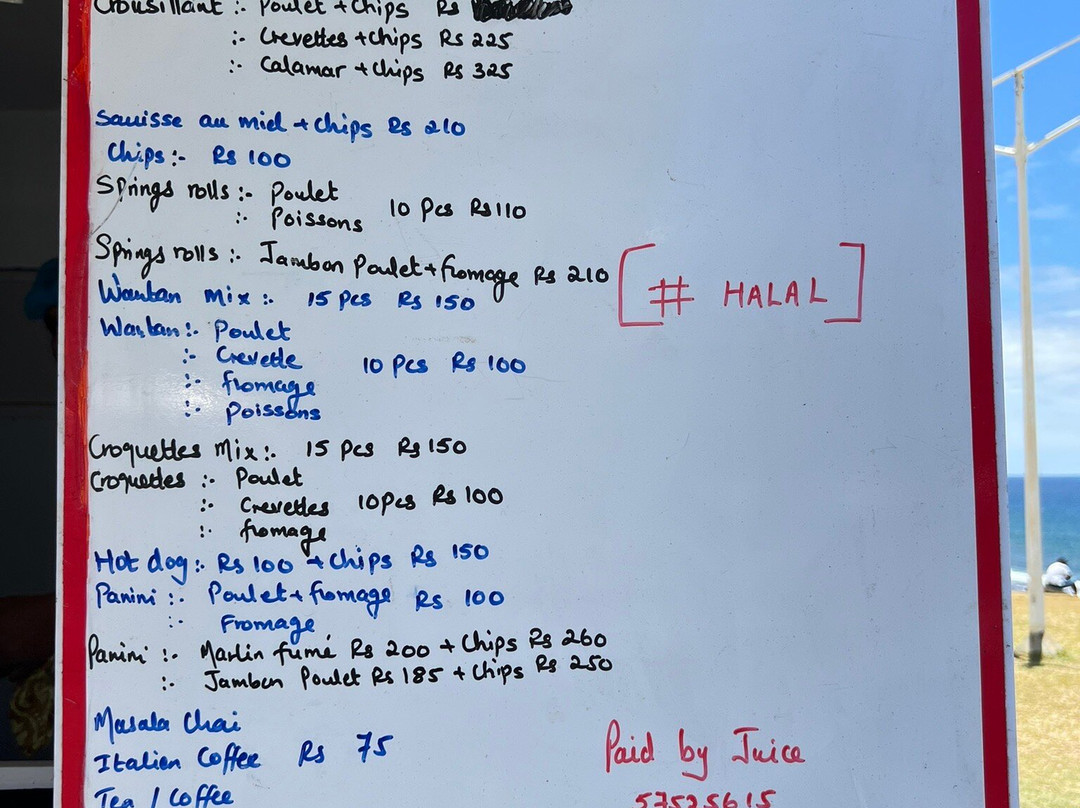 Crousillant :- Poulet + Chips Rs
:- Crevettes + Chips Rs 225
:- Calamar + Chips Rs 325
Sauisse au miel + Chips Rs 210
Chips :- Rs 100
Springs rolls :- Poulet
:- Poissons 10 Pcs Rs 110
Springs rolls :- Jambon Poulet + fromage Rs 210
[ # HALAL ]
Wantan mix :- 15 Pcs Rs 150
Wantan :- Poulet
:- Crevette 10 Pcs Rs 100
:- fromage
:- Poissons
Croquettes Mix :- 15 Pcs Rs 150
Croquettes :- Poulet
:- Crevettes 10 Pcs Rs 100
:- fromage
Hot dog :- Rs 100 + Chips Rs 150
Panini :- Poulet + fromage Rs 100
:- Fromage
Panini :- Marlin fumé Rs 200 + Chips Rs 260
:- Jambon Poulet Rs 185 + Chips Rs 250
Masala Chai
Italien Coffee Rs 75
Tea / Coffee
Paid by Juice
57525615